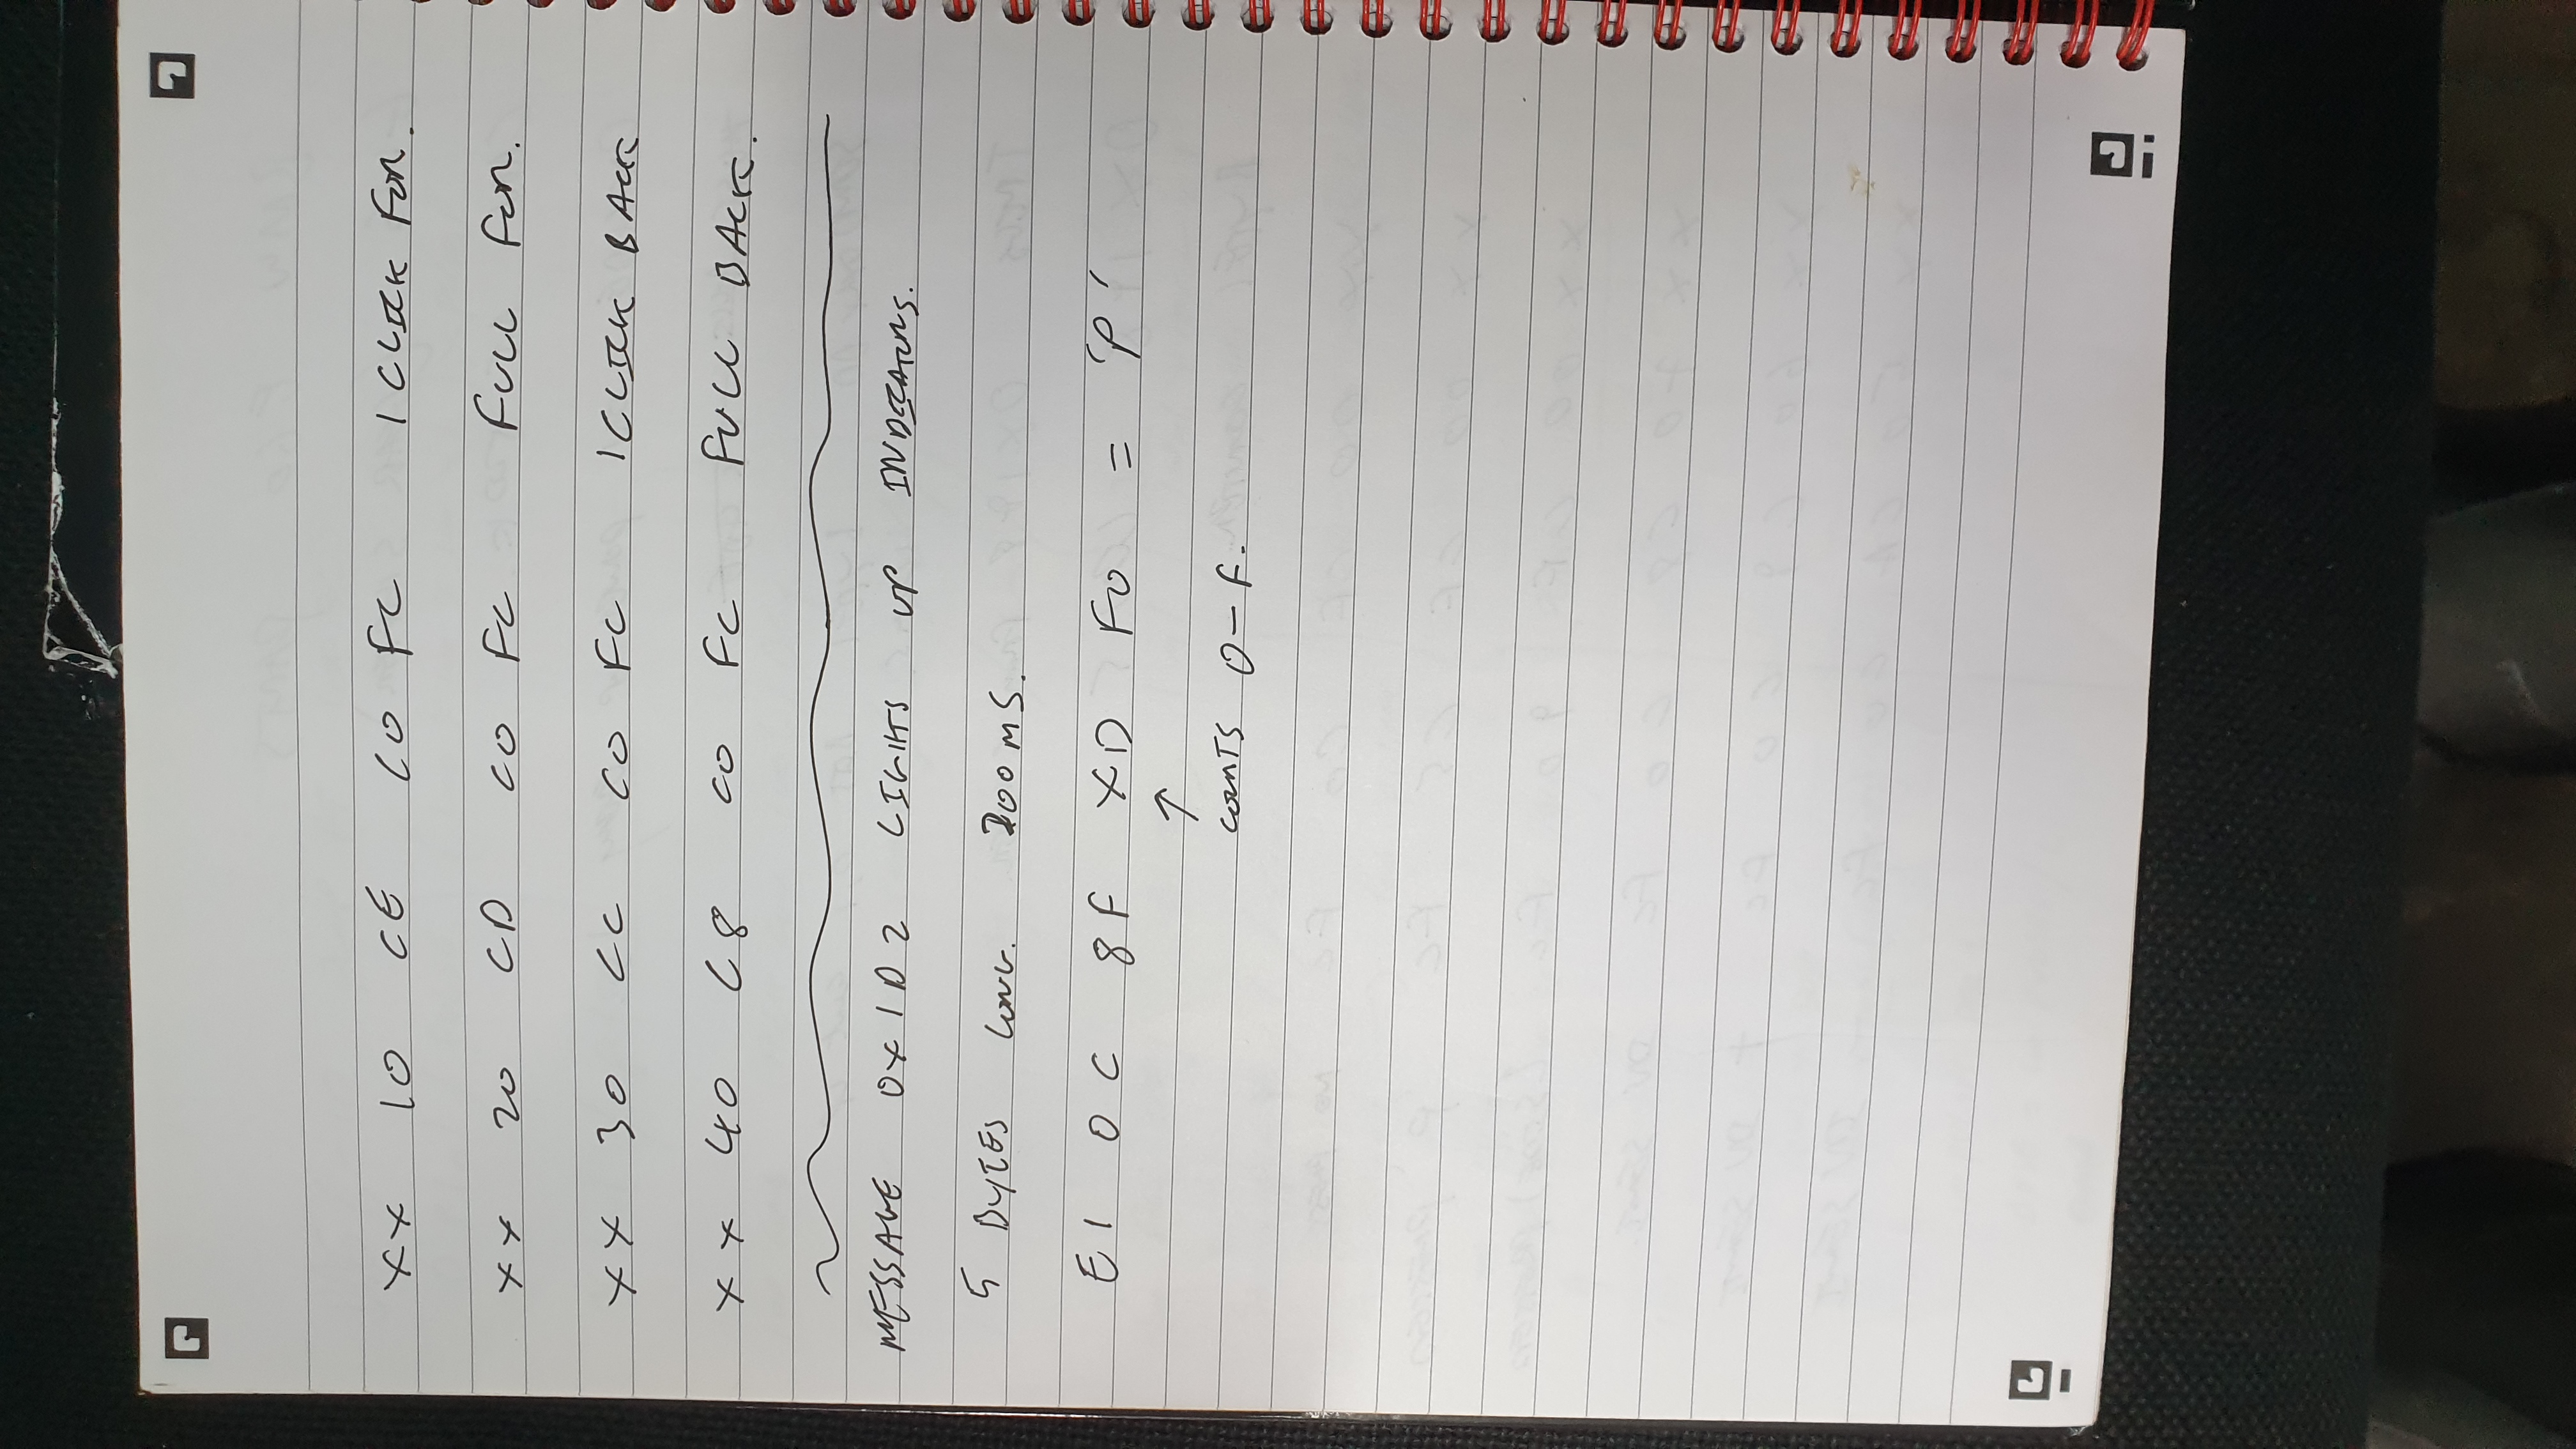 XX 10 CE C0 FC 1 CLICK FOR.
XX 20 CD C0 FC FULL FOR.
XX 30 CC C0 FC 1 CLICK BACK
XX 40 C8 C0 FC FULL BACK.
MESSAGE 0x1D2 LIGHTS UP INDICATORS.
5 BYTES LONG. 200 MS.
E1 0C 8F XD F0 = 'P'
↑
COUNTS 0-F.